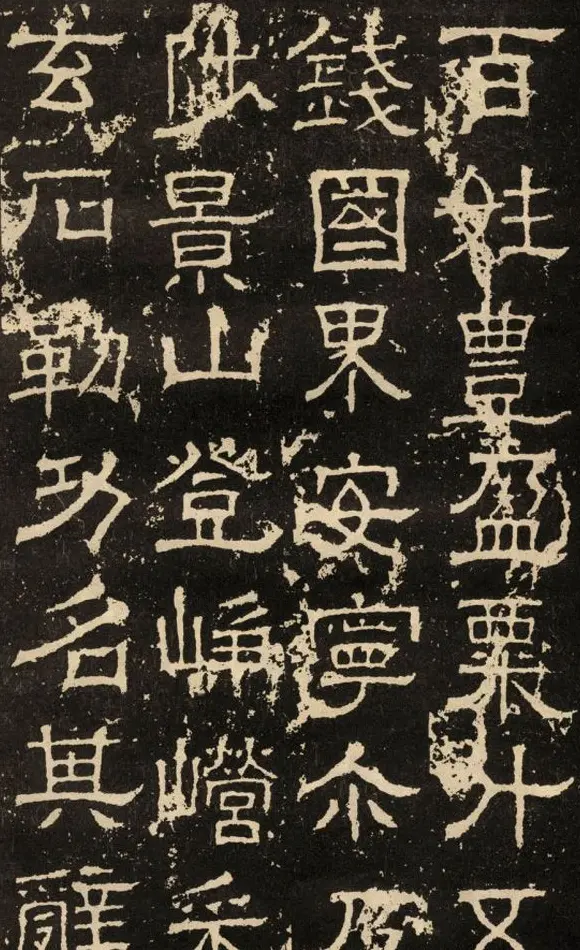 百姓豐盈粟升五
錢國界安寧尔乃
陟景山登崢巆采
玄石勒功名其辭